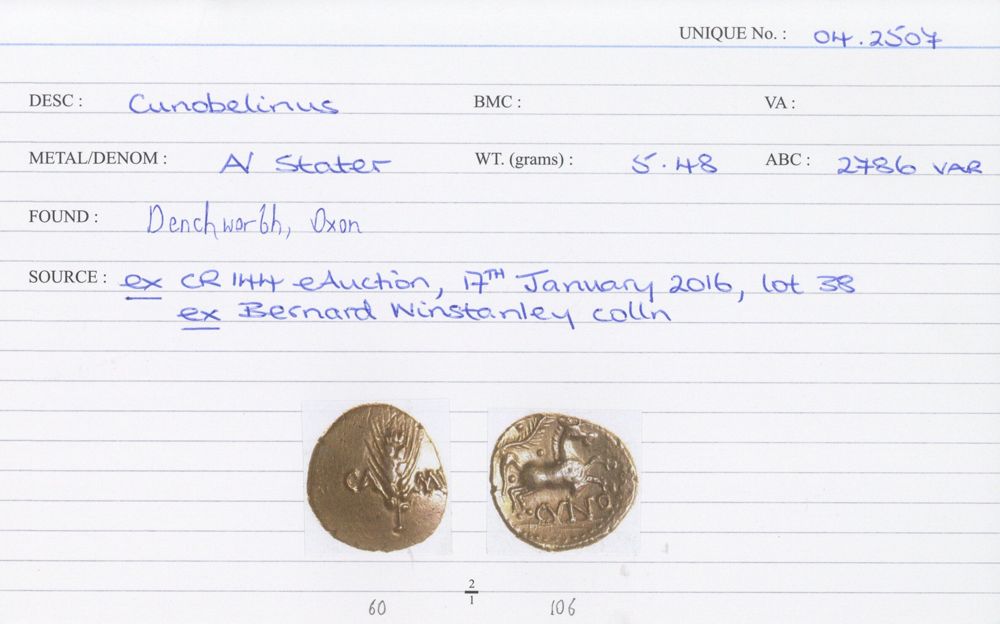 UNIQUE No. : 04.2507
DESC : Cunobelinus BMC : VA :
METAL/DENOM : AV Stater WT. (grams) : 5.48 ABC : 2786 VAR
FOUND : Denchworth, Oxon
SOURCE : ex CR 144 eAuction, 17TH January 2016, lot 38
ex Bernard Winstanley colln
CA M
CVNO
2
1
60 106